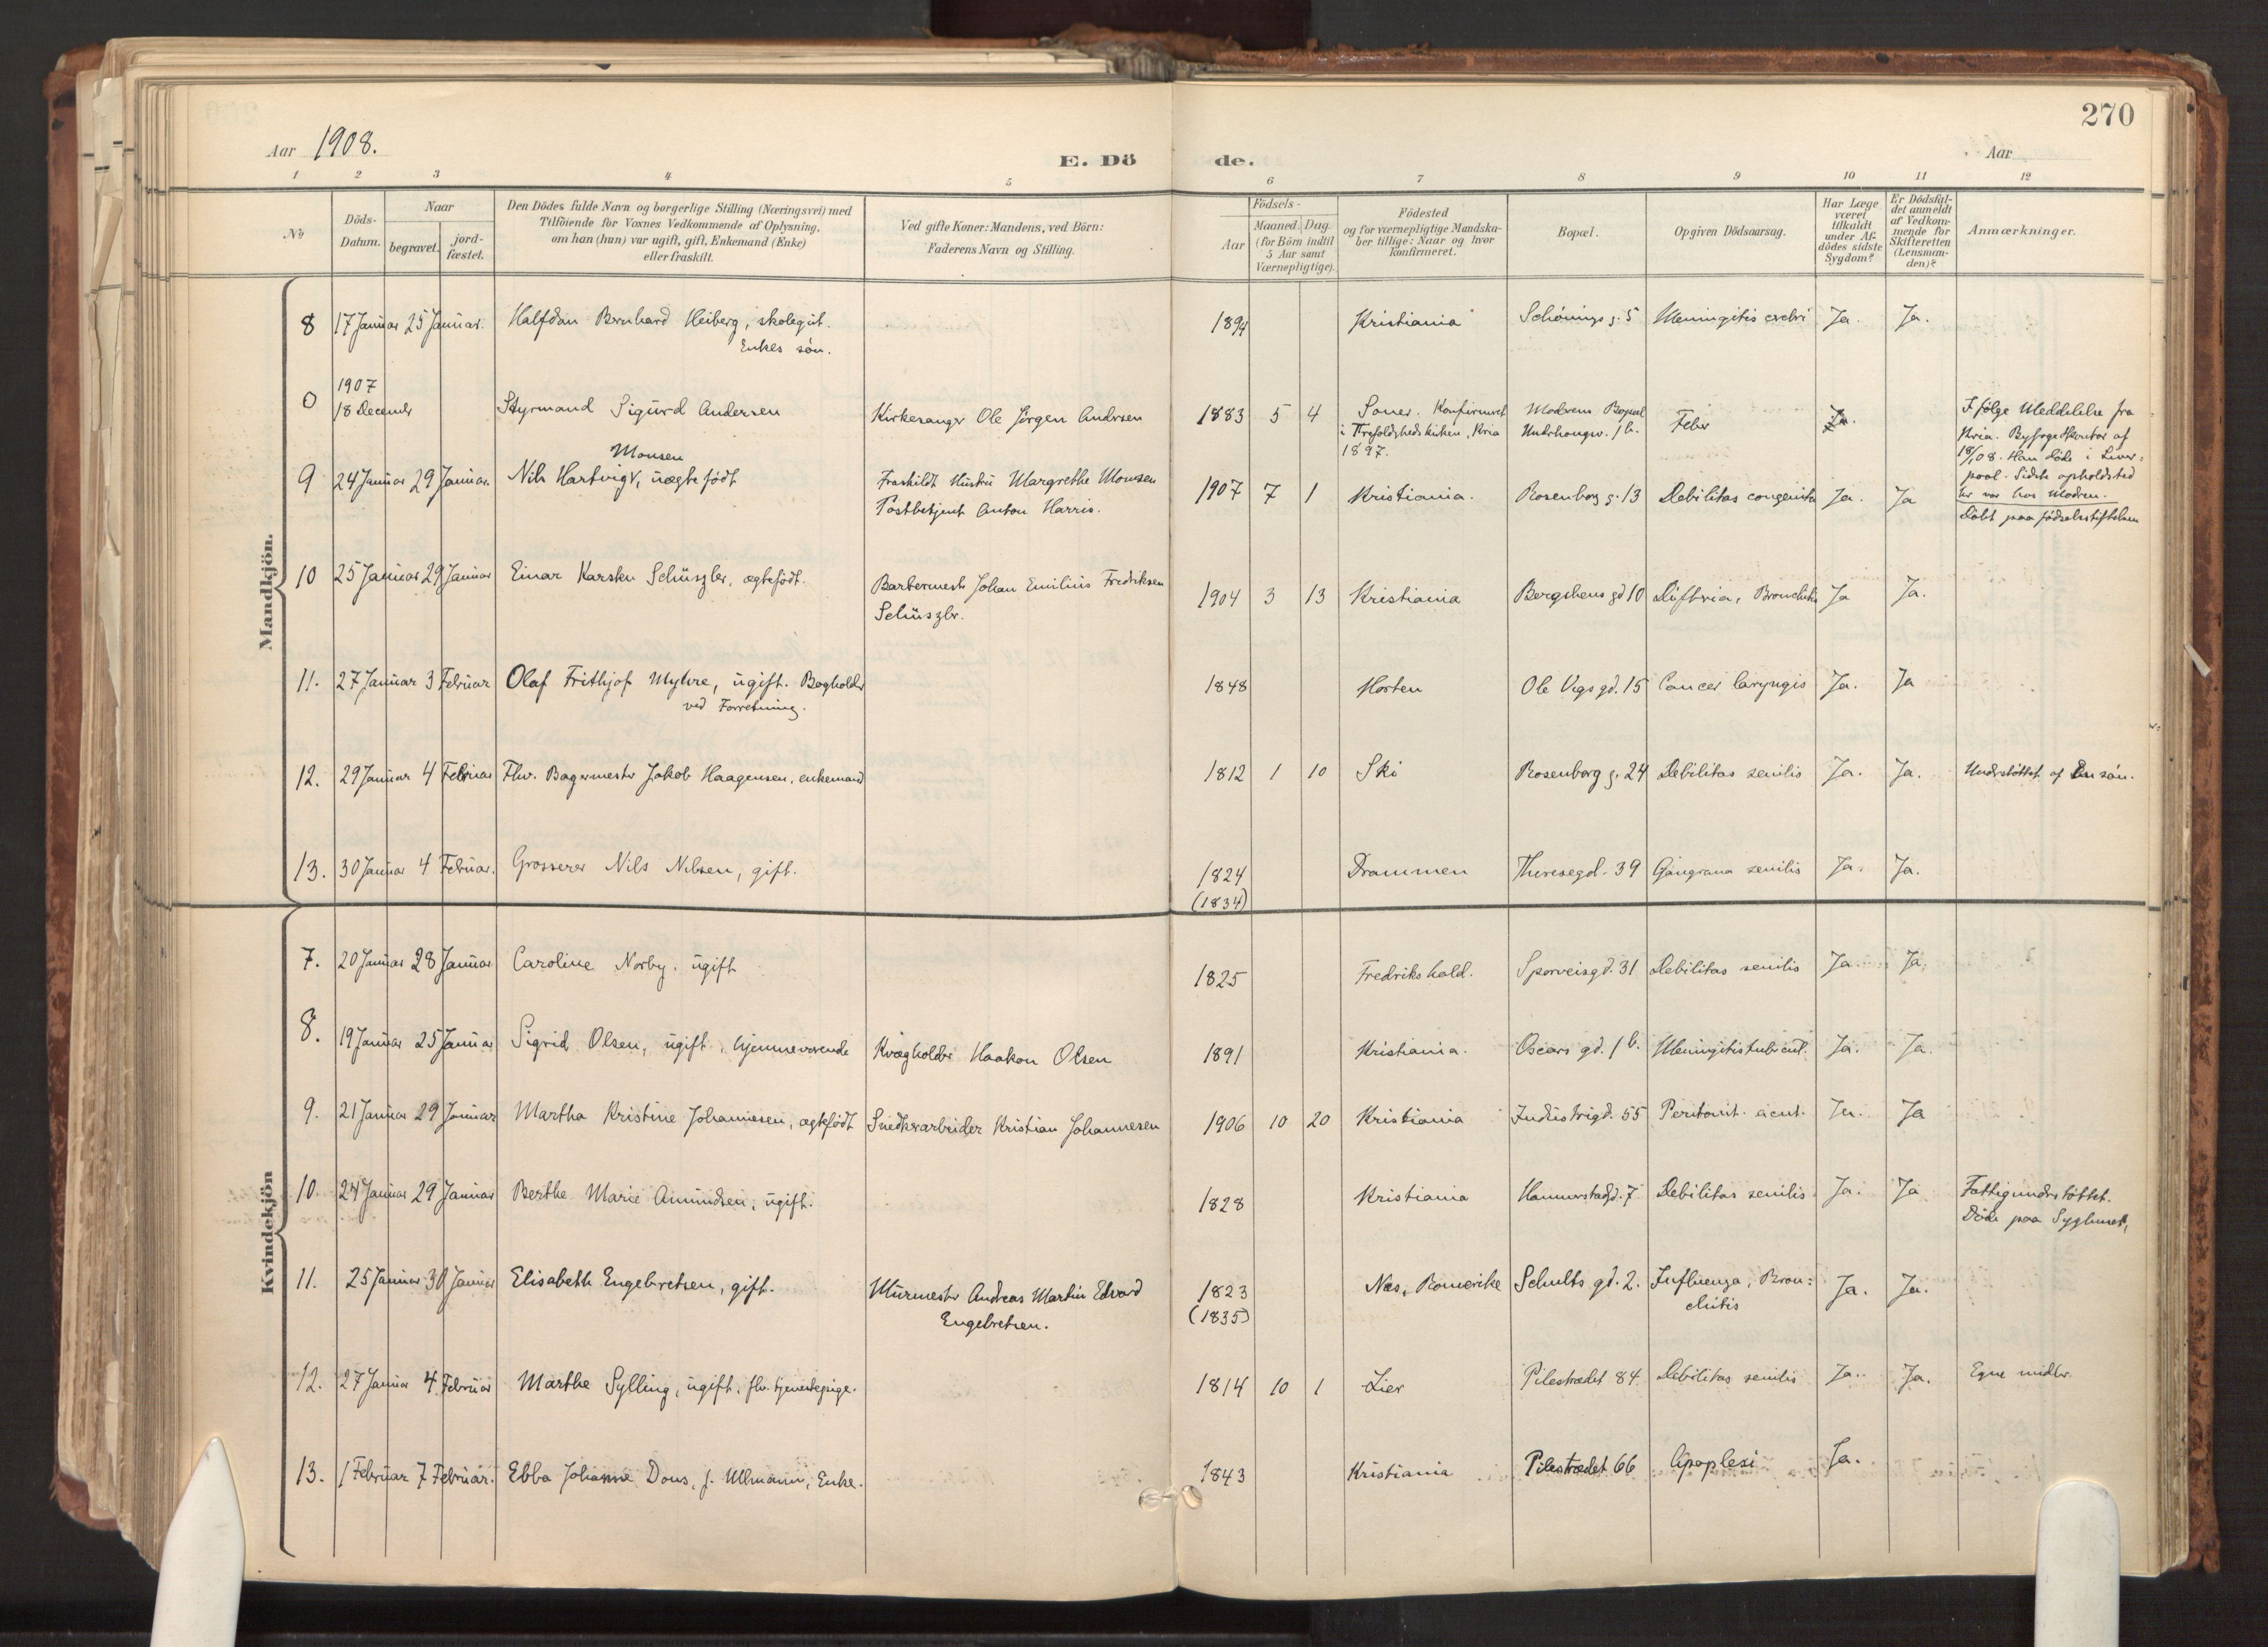 270
Aar 1908.
E. Dö de.
Aar
1 2 3 4 5 6 7 8 9 10 11 12
No
Döds-Datum.
Naar
begravet.
jord-fæstet.
Den Dödes fulde Navn og borgerlige Stilling (Næringsvei) med
Tilföiende for Voxnes Vedkommende af Oplysning,
om han (hun) var ugift, gift, Enkemand (Enke)
eller fraskilt.
Ved gifte Koner: Mandens, ved Börn:
Faderens Navn og Stilling.
Födsels-
Aar
Maaned. Dag.
(for Börn indtil
5 Aar samt
Værnepligtige).
Födested
og for værnepligtige Mandska-
ber tillige: Naar og hvor
konfirmeret.
Bopæl.
Opgiven Dödsaarsag.
Har Læge
været
tilkaldt
under Af-
dödes sidste
Sygdom?
Er Dödsfal-
det anmeldt
af Vedkom-
mende for
Skifteretten
(Lensman-
den)?
Anmærkninger.
Mandkjön.
8 17 Januar 25 Januar. Halfdan Bernhard Heiberg, skolegut. 1894 Kristiania Schönings g. 5 Meningitis cerebri Ja. Ja.
Enkes sön.
1907
0 18 December Styrmand Sigurd Andersen Kirkesanger Ole Jörgen Andersen 1883 5 4 Soner. Konfirmeret Moderens Bopæl Feber Ja. Ifölge Meddelelse fra
i Trefoldighedskirken, Kria Underhaugsv. 1 b. Kria. Byfogedkontor af
1897. 18/1 08. Han döde i Liver-
pool. Sidste opholdsted
her var hos Modren.
Monsen
9 24 Januar 29 Januar. Nils Hartvig, uægte födt Fraskildt Hustru Margrethe Monsen 1907 7 1 Kristiania. Rosenborg g. 13 Debilitas congenita Ja. Ja
Postbetjent Anton Harris. Döbt paa födselsstiftelsen
10 25 Januar 29 Januar Einar Karsten Schüszler, ægtefödt. Barbermester Johan Emilius Fredriksen 1904 3 13 Kristiania Bergsliens gd 10 Difteria, Bronchitis Ja Ja.
Schüszler.
11. 27 Januar 3 Februar Olaf Frithjof Myhre, ugift. Bogholder 1848 Horten Ole Vigs gd. 15 Cancer laryngis Ja. Ja
ved Forretning.
12. 29 Januar 4 Februar Fhv. Bagermester Jakob Haagensen, enkemand 1812 1 10 Ski Rosenborg g. 24 Debilitas senilis Ja. Ja. Understöttet af En sön.
13. 30 Januar 4 Februar. Grosserer Nils Nilsen, gift. 1824 Drammen Theresegd. 39 Gangræna senilis Ja. Ja.
(1834)
Kvindekjön
7. 20 Januar 28 Januar Caroline Norby. ugift 1825 Fredrikshald. Sporveisgd. 31 Debilitas senilis Ja Ja.
8. 19 Januar 25 Januar Sigrid Olsen, ugift, hjemmeværende Kvægholder Haakon Olsen 1891 Kristiania. Oscars gd. 1 b. Meningitis tubercul. Ja. Ja.
9. 21 Januar 29 Januar Martha Kristine Johannesen, ægtefödt Snedkerarbeider Kristian Johannesen 1906 10 20 Kristiania Industrigd. 55 Peritonit. acut. Ja. Ja
10. 24 Januar 29 Januar Berthe Marie Amundsen, ugift. 1828 Kristiania Hammerstadgd. 7 Debilitas senilis Ja. Ja Fattigunderstöttet.
Döde paa Sygehuset,
11. 25 Januar 30 Januar Elisabeth Engebretsen, gift. Murmester Andreas Martin Edvard 1823 Næs, Romerike Schults gd. 2. Influenza, Bron-
Engebretsen. (1835) chitis Ja. Ja.
12. 27 Januar 4 Februar Marthe Sylling, ugift, fhv. tjenestepige. 1814 10 1 Lier Pilestrædet 84. Debilitas senilis Ja. Ja. Egne midler.
13. 1 Februar 7 Februar. Ebba Johanne Dons, f. Ullmann, Enke. 1843 Kristiania Pilestrædet 66 Apoplexi Ja.